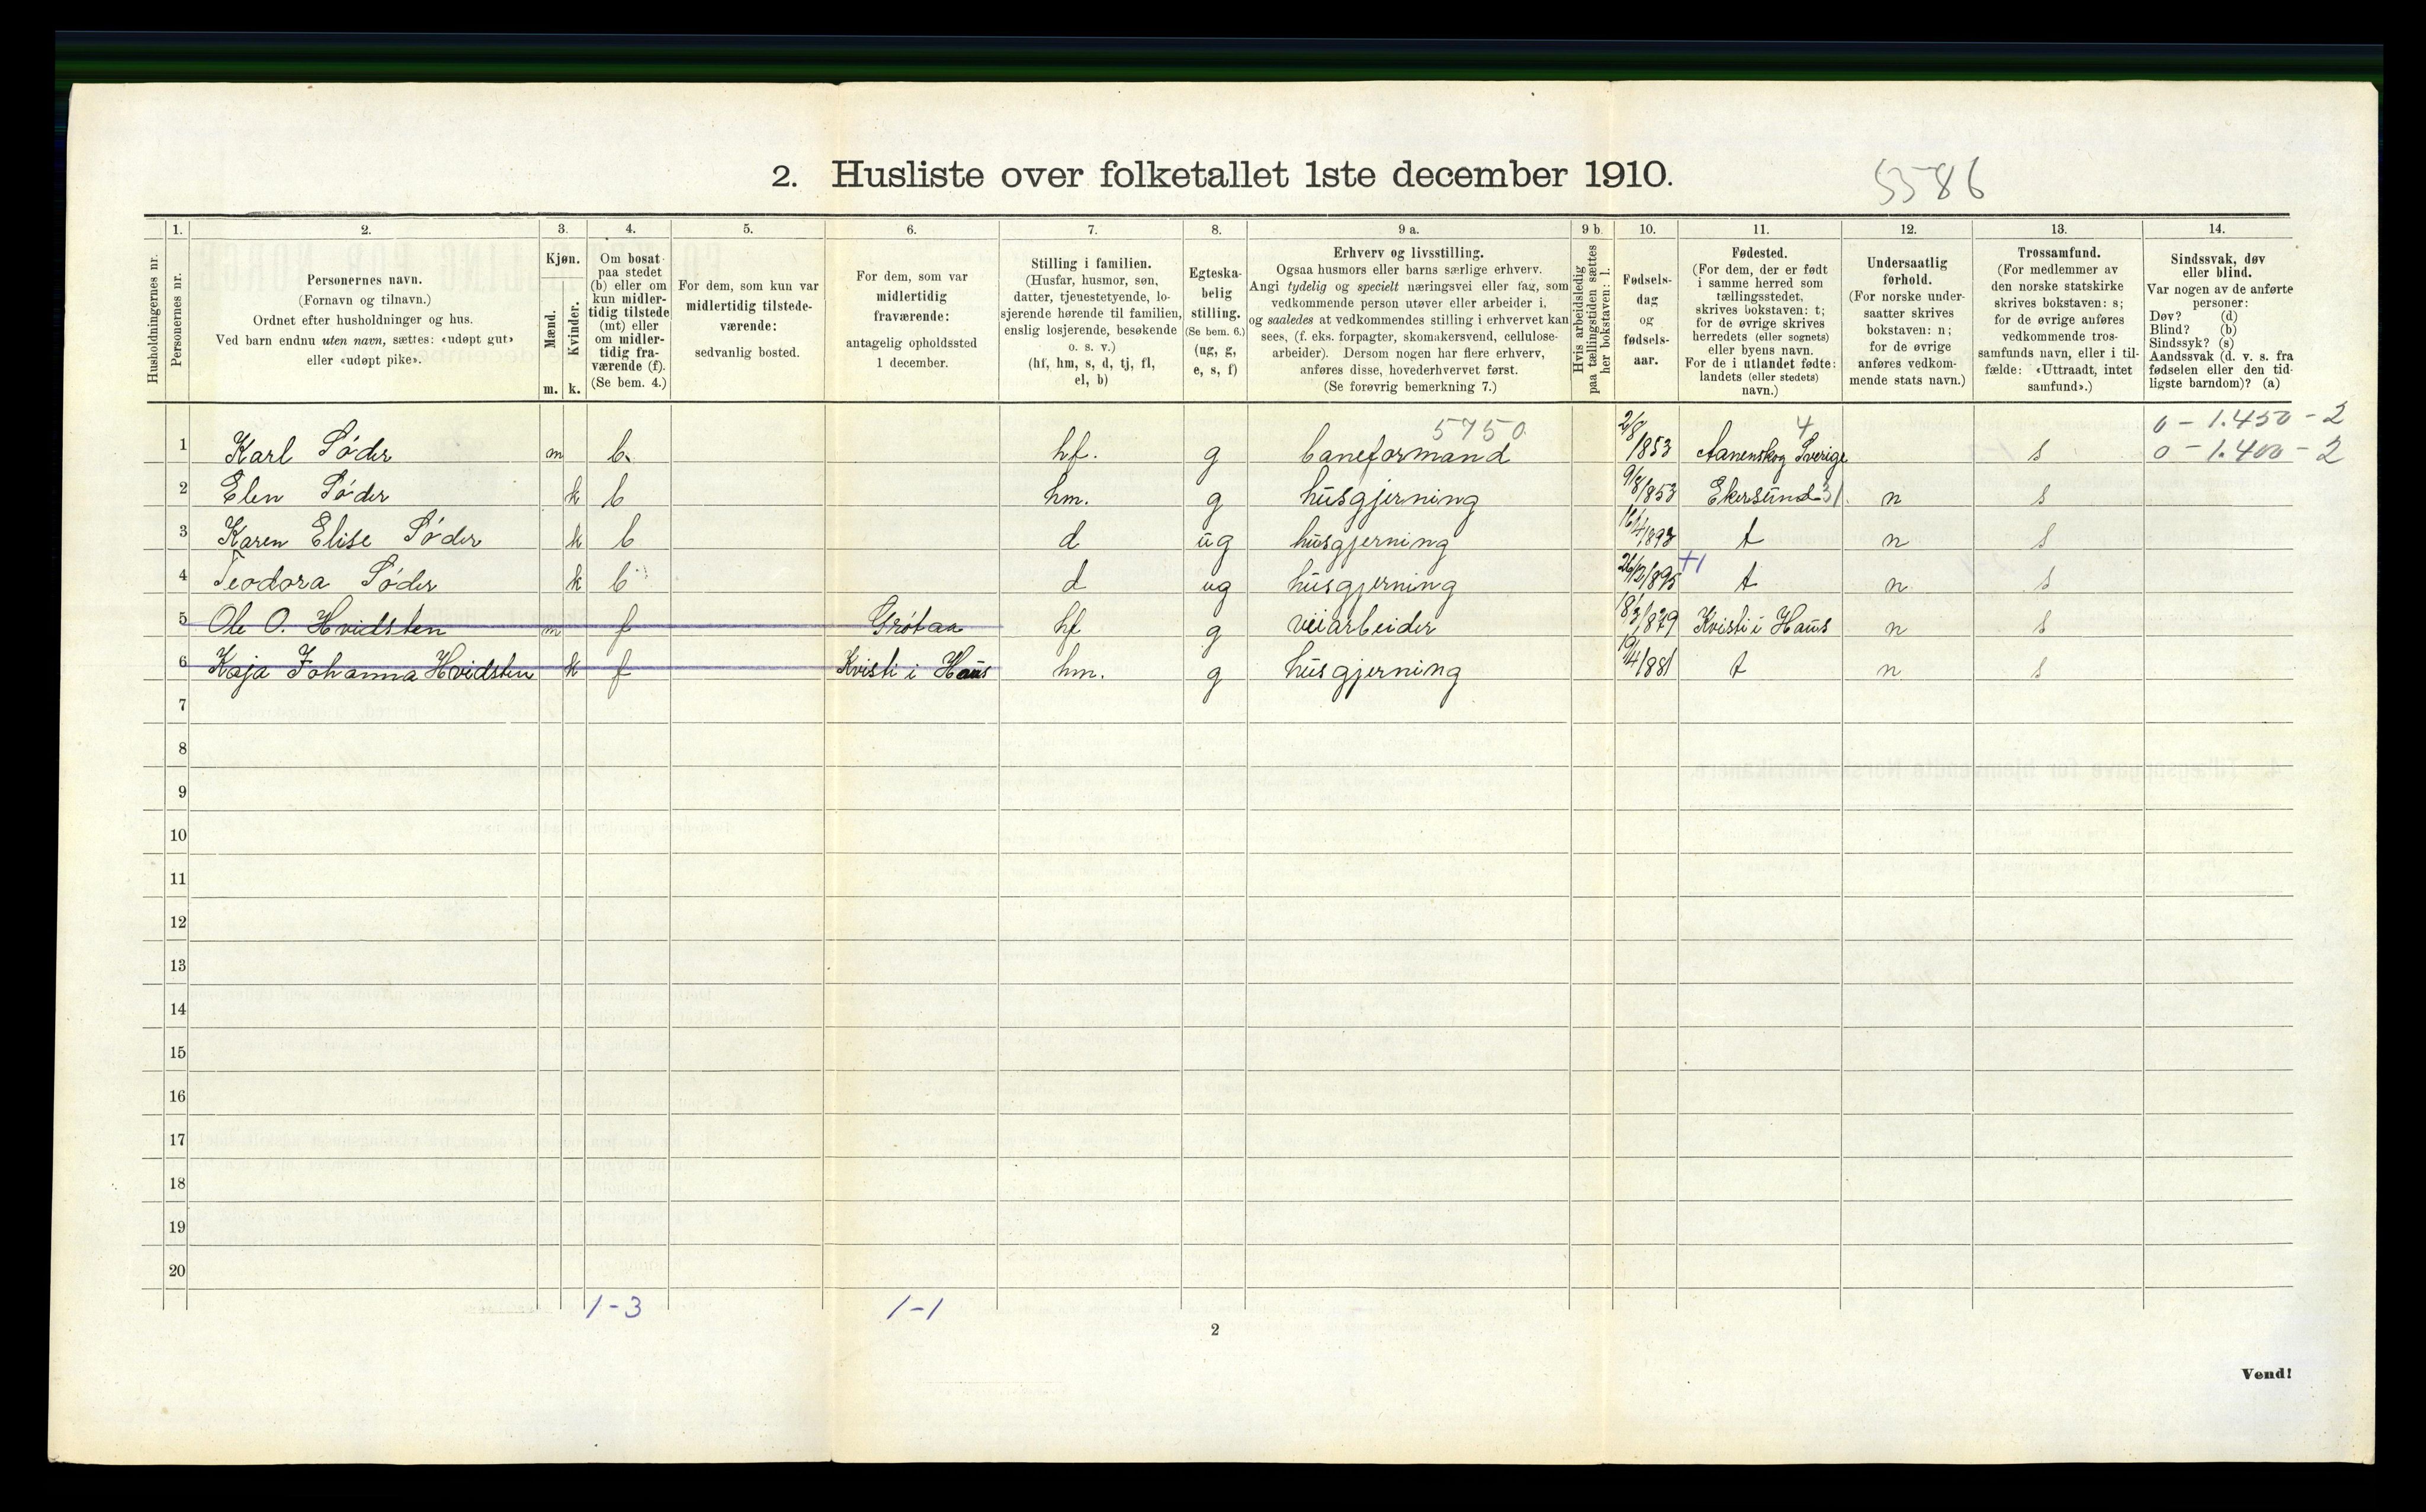 2. Husliste over folketallet 1ste december 1910.
5586
Husholdningernes nr.
1.
Personernes nr.
2.
Personernes navn.
(Fornavn og tilnavn.)
Ordnet efter husholdninger og hus.
Ved barn endnu uten navn, sættes: «udøpt gut»
eller «udøpt pike».
3.
Kjøn.
Mænd.
Kvinder.
m. k.
4.
Om bosat
paa stedet
(b) eller om
kun midler-
tidig tilstede
(mt) eller
om midler-
tidig fra-
værende (f).
(Se bem. 4.)
5.
For dem, som kun var
midlertidig tilstede-
værende:
sedvanlig bosted.
6.
For dem, som var
midlertidig
fraværende:
antagelig opholdssted
1 december.
7.
Stilling i familien.
(Husfar, husmor, søn,
datter, tjenestetyende, lo-
sjerende hørende til familien,
enslig losjerende, besøkende
o. s. v.)
(hf, hm, s, d, tj, fl,
el, b)
8.
Egteska-
belig
stilling.
(Se bem. 6.)
(ug, g,
e, s, f)
9 a.
Erhverv og livsstilling.
Ogsaa husmors eller barns særlige erhverv.
Angi tydelig og specielt næringsvei eller fag, som
vedkommende person utøver eller arbeider i,
og saaledes at vedkommendes stilling i erhvervet kan
sees, (f. eks. forpagter, skomakersvend, cellulose-
arbeider). Dersom nogen har flere erhverv,
anføres disse, hovederhvervet først.
(Se forøvrig bemerkning 7.)
9 b.
Hvis arbeidsledig
paa tællingstiden sættes
her bokstaven: l.
10.
Fødsels-
dag
og
fødsels-
aar.
11.
Fødested.
(For dem, der er født
i samme herred som
tællingsstedet,
skrives bokstaven: t;
for de øvrige skrives
herredets (eller sognets)
eller byens navn.
For de i utlandet fødte:
landets (eller stedets)
navn.)
12.
Undersaatlig
forhold.
(For norske under-
saatter skrives
bokstaven: n;
for de øvrige
anføres vedkom-
mende stats navn.)
13.
Trossamfund.
(For medlemmer av
den norske statskirke
skrives bokstaven: s;
for de øvrige anføres
vedkommende tros-
samfunds navn, eller i til-
fælde: «Uttraadt, intet
samfund».)
14.
Sindssvak, døv
eller blind.
Var nogen av de anførte
personer:
Døv? (d)
Blind? (b)
Sindssyk? (s)
Aandssvak (d. v. s. fra
fødselen eller den tid-
ligste barndom)? (a)
5750 4 0 - 1.450 - 2
1 Karl Söder m b. hf. g baneformand 2/8/1853 Aanenskog Sverige s 0 - 1.400 - 2
2 Elen Söder k b hm. g husgjerning 9/8/1853 Ekersund 31. n s
3 Karen Elise Söder k b d ug husgjerning 16/4/1893 t n s
+1
4 Teodora Söder k b d ug husgjerning 26/12/1895 t n s
5 Ole O. Hvidsten m f Grötaa hf g veiarbeider 18/3/1879 Kvisti i Haus n s
6 Kaja Johanna Hvidsten k f Kvisti i Haus hm. g husgjerning 19/4/1881 t n s
7
8
9
10
11
12
13
14
15
16
17
18
19
20
1-3 1-1
2
Vend!